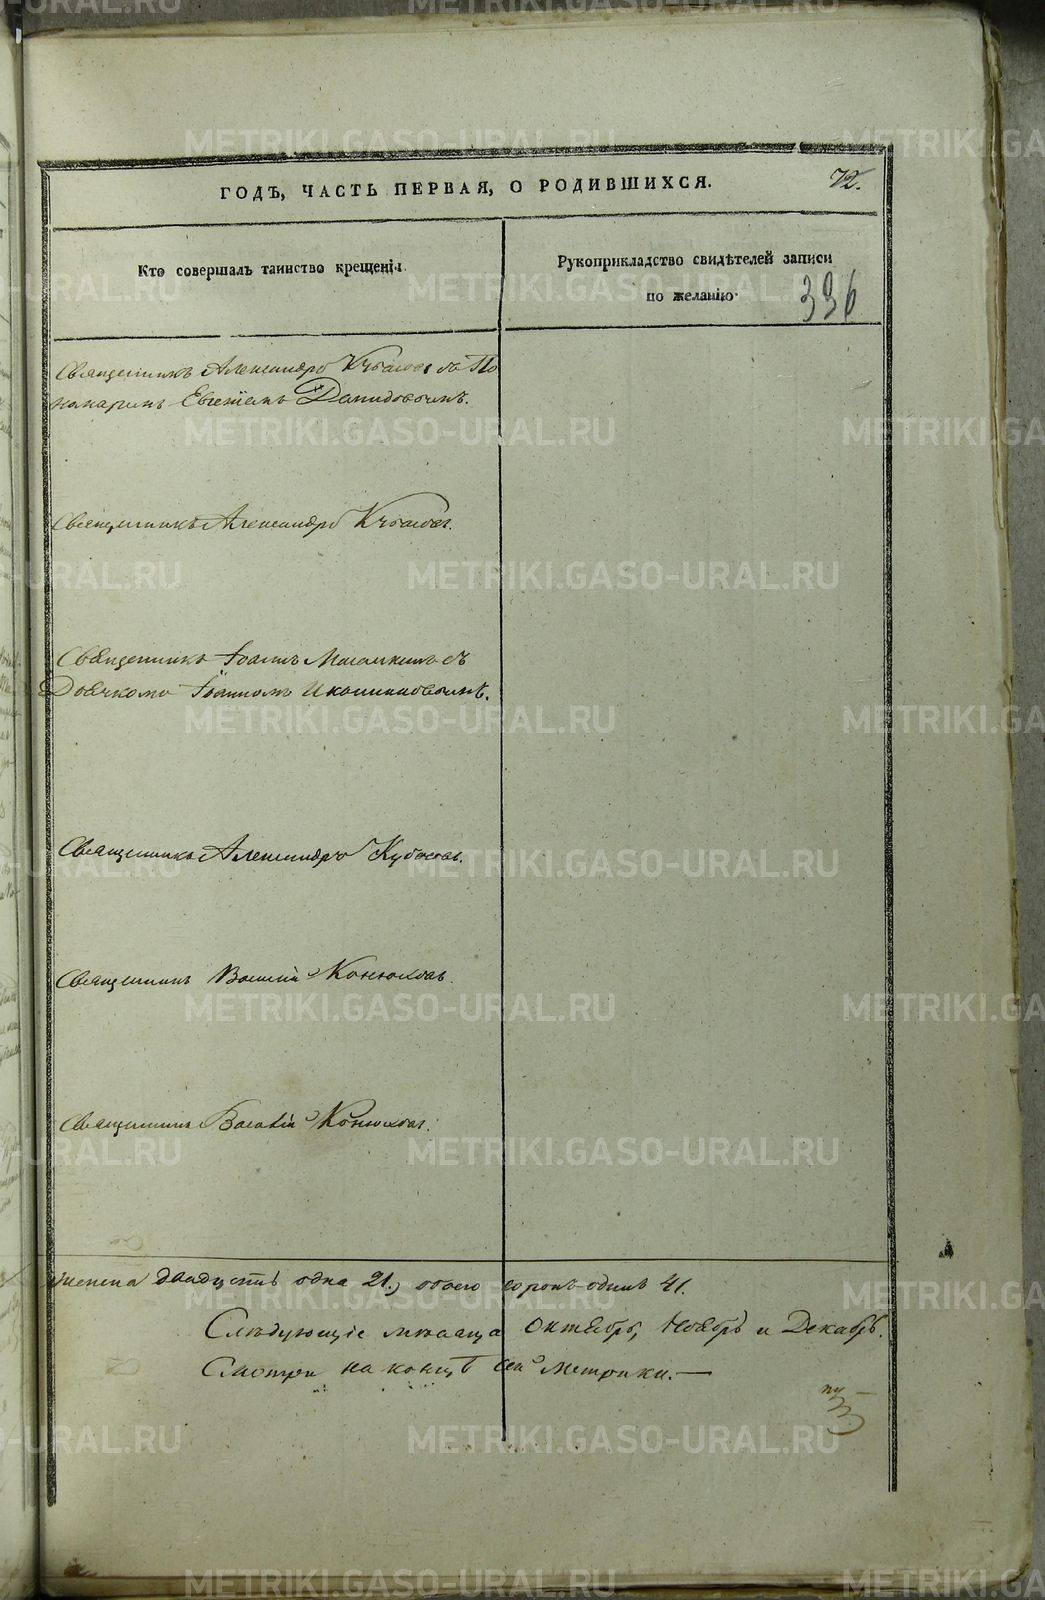 ГОДЪ, ЧАСТЬ ПЕРВАЯ, О РОДИВШИХСЯ.
72.
Кто совершалъ таинство крещенія.
Рукоприкладство свидѣтелей записи
по желанію
336
Священникъ Александръ Кубасовъ съ По
номаремъ Евгеніемъ Давидовымъ.
Священникъ Александръ Кубасовъ.
Священникъ Іоаннъ съ
Дьячкомъ Іоанномъ Иконниковымъ.
Священникъ Александръ Кубасовъ.
Священникъ Василій Конюховъ.
Священникъ Василій Конюховъ.
женска двадцать одна 21, обоего сорокъ одинъ 41.
Слѣдующіе мѣсяца Октябрь, Ноябрь и Декабрь.
Смотри на концѣ сей Метрики.—
METRIKI.GASO-URAL.RU